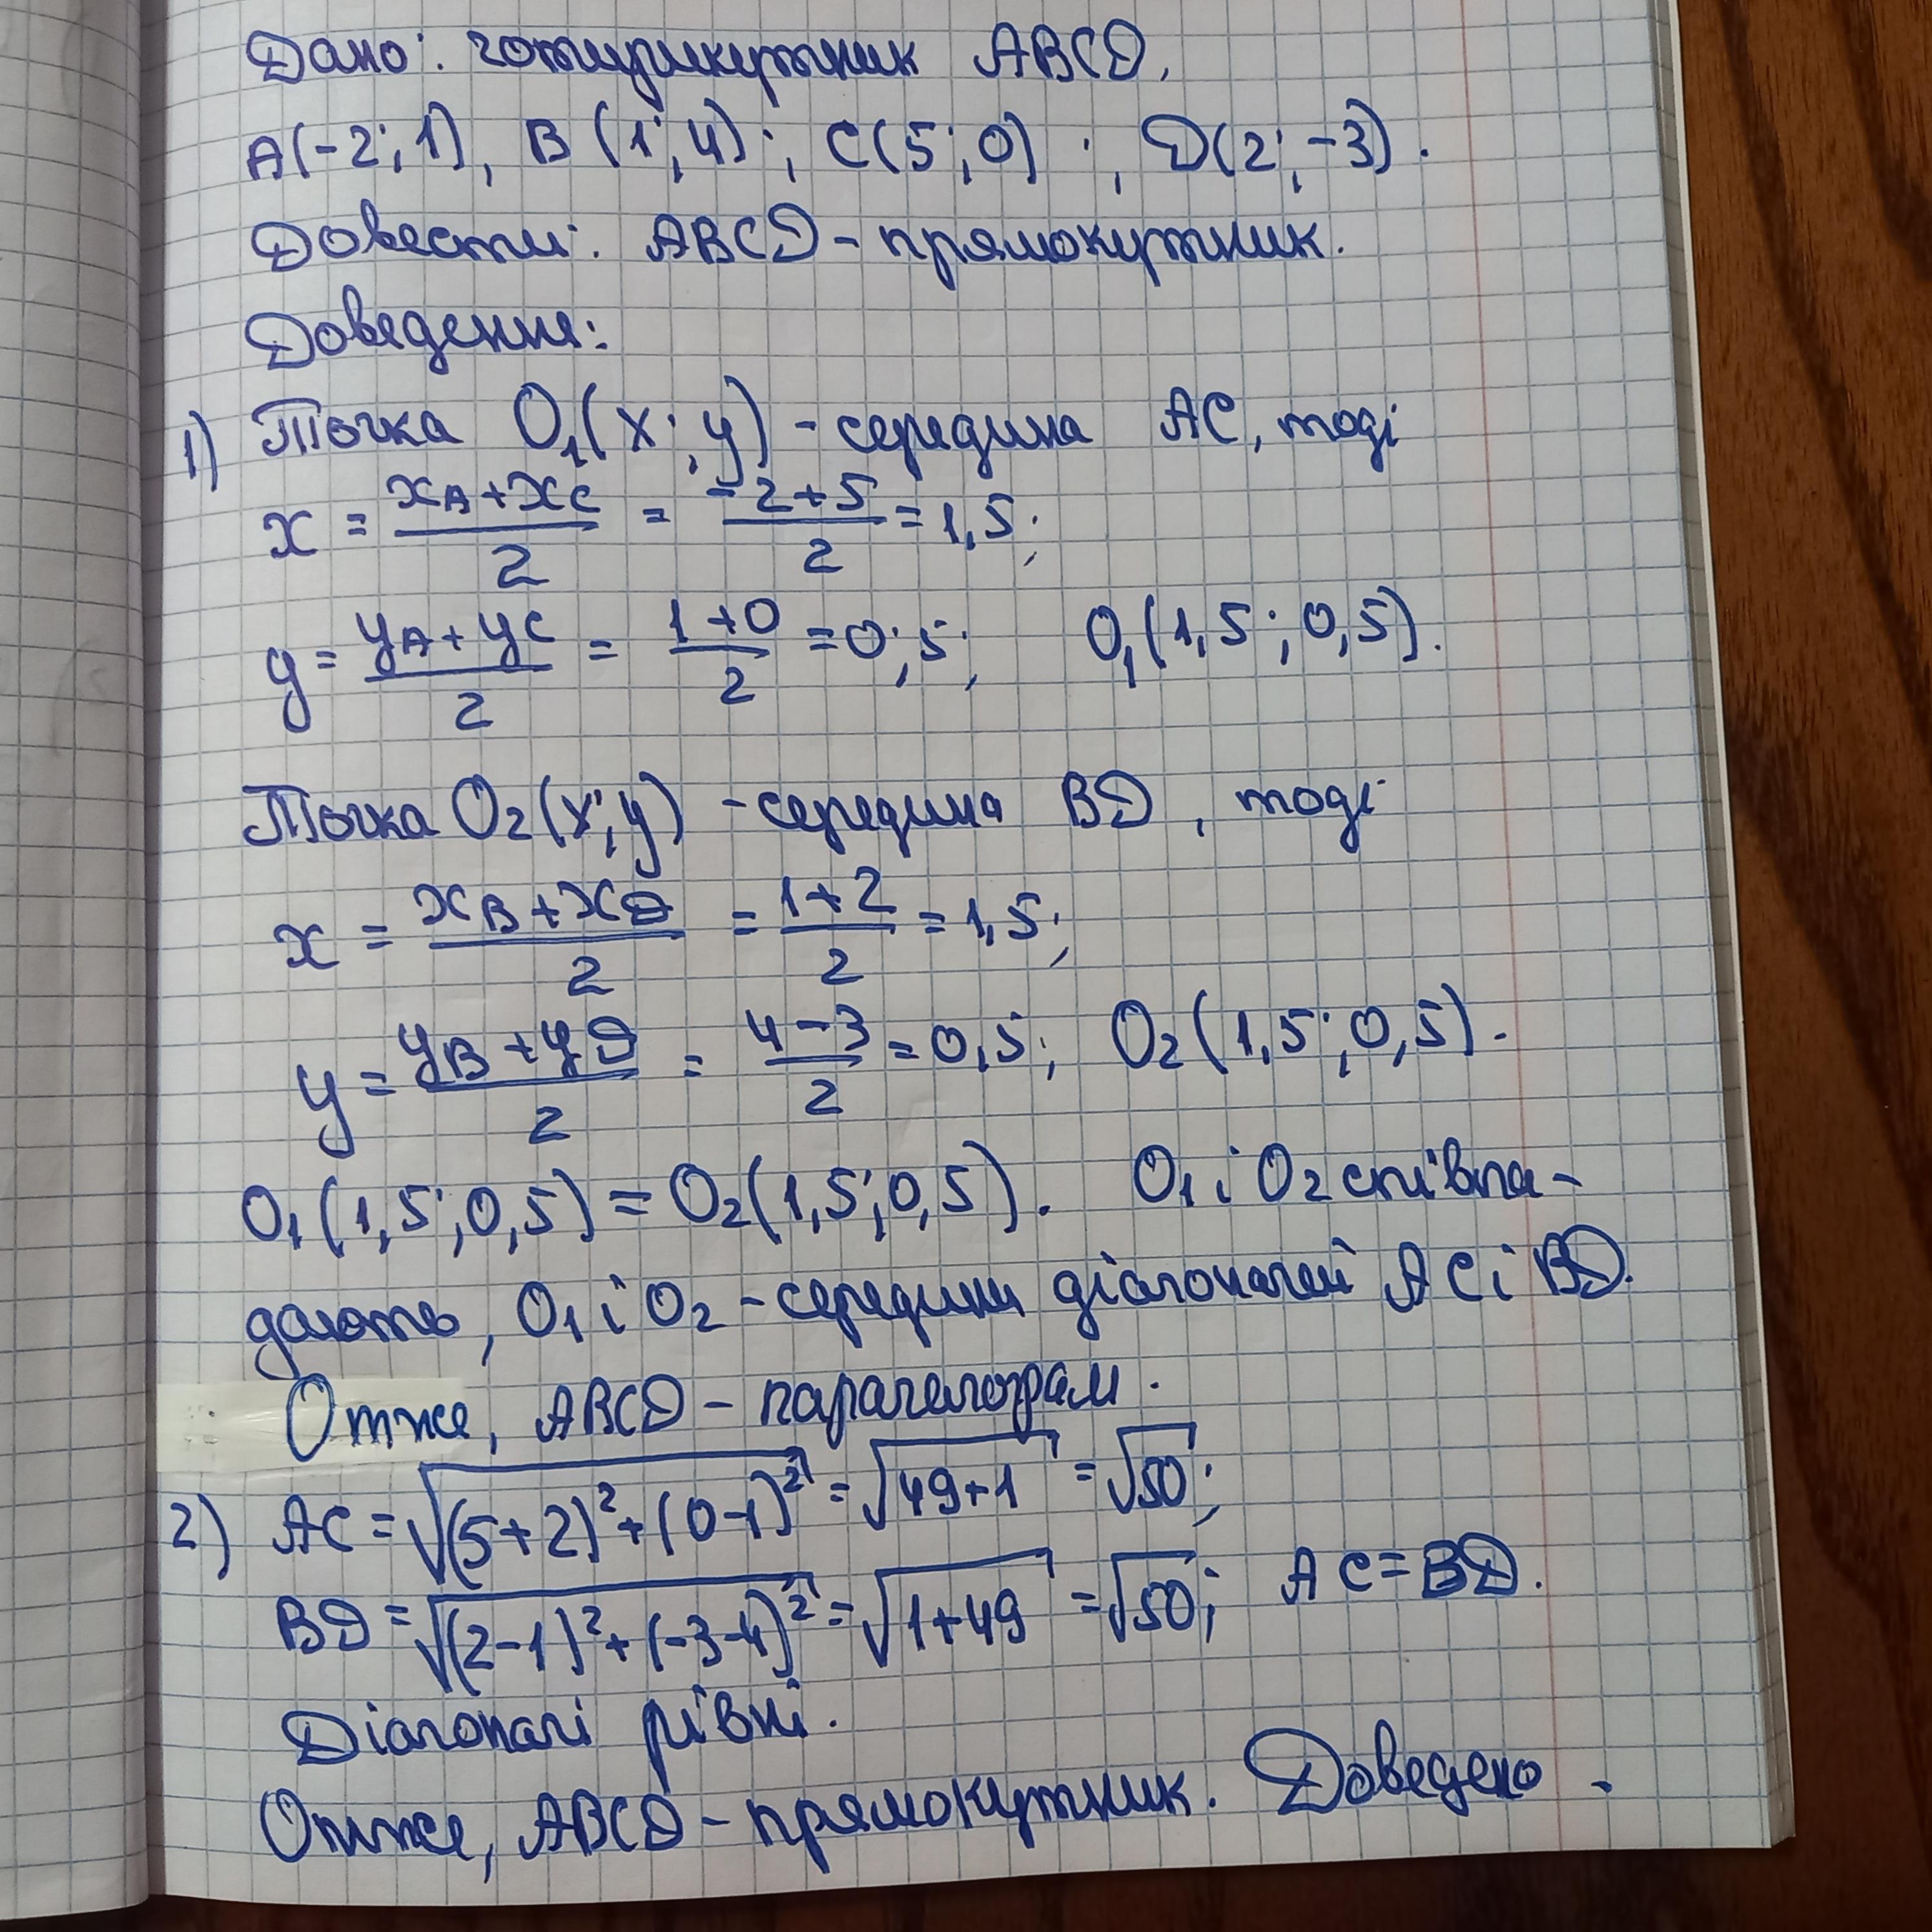 Дано: чотирикутник ABCD,
A(-2; 1), B (1; 4); C(5; 0) ; D(2; -3).
Довести: ABCD - прямокутник.
Доведення:
1) Точка O₁(x; y) - середина AC, тоді
x = (x_A + x_C)/2 = (-2+5)/2 = 1,5;
y = (y_A + y_C)/2 = (1+0)/2 = 0;5; O₁(1,5; 0,5).
Точка O₂(x; y) - середина BD, тоді
x = (x_B + x_D)/2 = (1+2)/2 = 1,5;
y = (y_B + y_D)/2 = (4-3)/2 = 0,5; O₂(1,5; 0,5).
O₁(1,5; 0,5) = O₂(1,5; 0,5). O₁ і O₂ співпа-
дають, O₁ і O₂ - середини діагоналей AC і BD.
Отже, ABCD - паралелограм.
2) AC = √((5+2)² + (0-1)²) = √(49+1) = √50;
BD = √((2-1)² + (-3-4)²) = √(1+49) = √50; AC = BD.
Діагоналі рівні.
Отже, ABCD - прямокутник. Доведено.